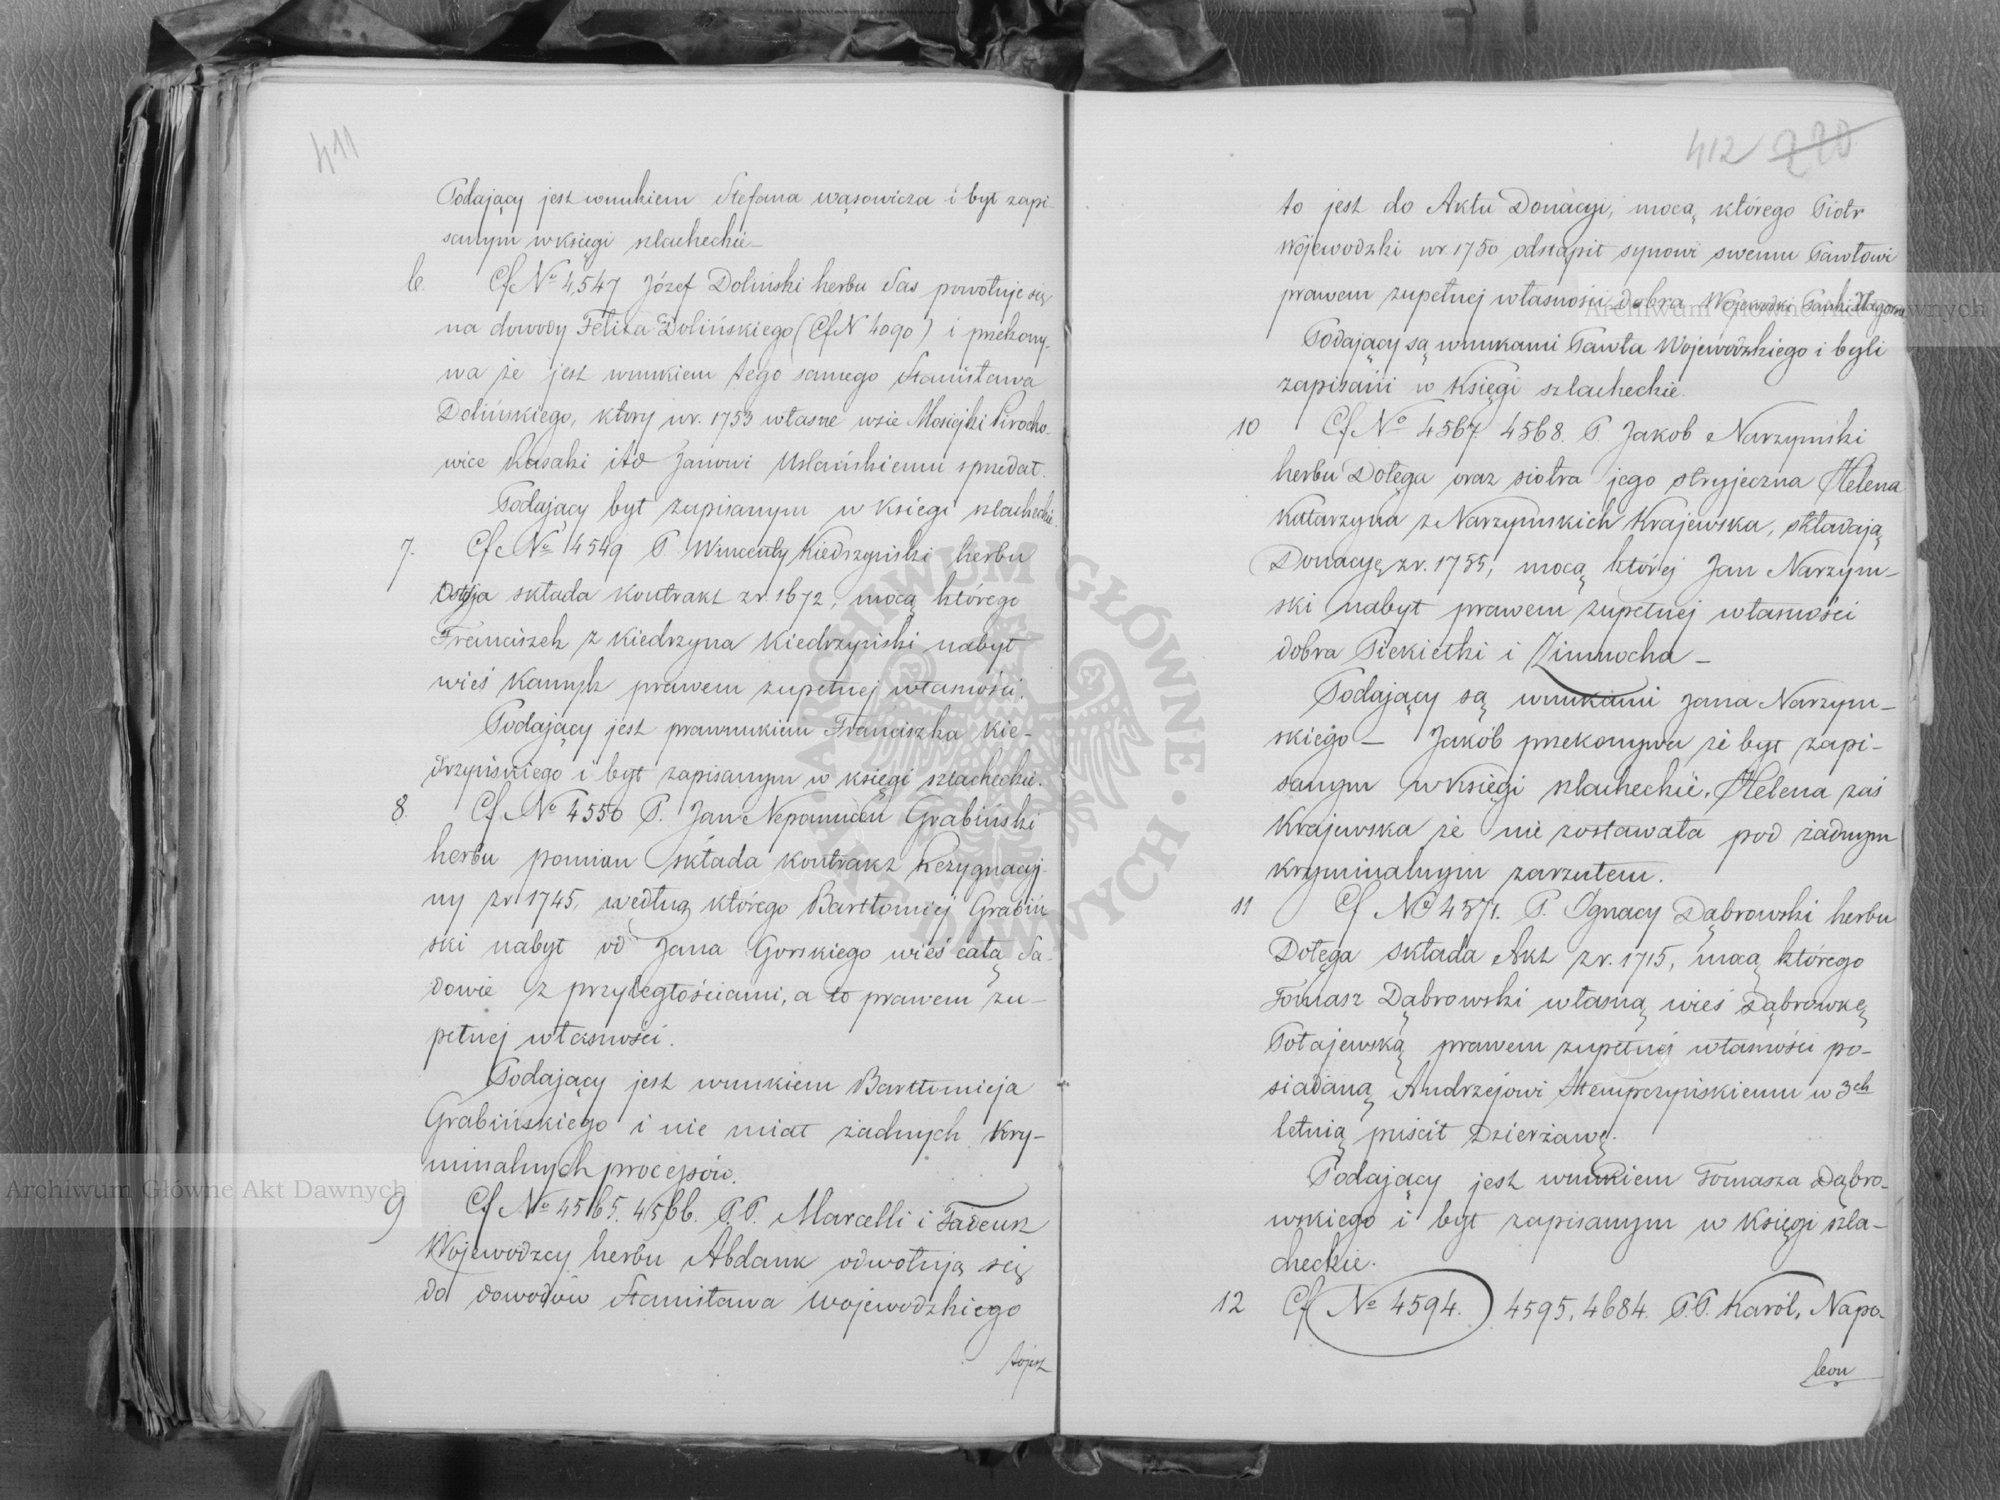 411
Podający jest wnukiem Stefana Wąsowicza i był zapi-
sanym w księgi szlacheckie _
6. Cf No 4547 Józef Doliński herbu Sas powołuje się
na dowody Felixa Dolińskiego (Cf N 4090) i przekony-
wa że jest wnukiem tego samego Stanisława
Dolińskiego, który w r. 1753 własne wsie Mosiejki
wice Kasaki itd Janowi Uslańskiemu sprzedał.
Podający był zapisanym w księgi szlacheckie.
7. Cf No 4549 P. Wincenty Kiedrzyński herbu
Ostoja składa kontrakt z r. 1672, mocą którego
Franciszek z Kiedrzyna Kiedrzyński nabył
wieś Kamyk prawem zupełnej własności.
Podający jest prawnukiem Franciszka Kie-
drzyńskiego i był zapisanym w księgi szlacheckie.
8. Cf No 4550 P. Jan Nepomucen Grabiński
herbu pomian składa kontrakt Rezygnacyj-
ny z r 1745, według którego Bartłomiej Grabiń
ski nabył od Jana Gorskiego wieś całą Sa-
dowie z przyległościami, a to prawem zu-
pełnej własności.
Podający jest wnukiem Bartłomieja
Grabińskiego i nie miał żadnych kry-
minalnych procesów.
9 Cf No 4565. 4566. P.P. Marcelli i Tadeusz
Wojewodzcy herbu Abdank odwołują się
do dowodów Stanisława Wojewodzkiego
to jest
412 220
to jest do Aktu Donacyi, mocą którego Piotr
Wojewodzki w r. 1750 odstąpił synowi swemu Pawłowi
prawem zupełnej własności dobra Wojewodki
Podający są wnukami Pawła Wojewodzkiego i byli
zapisani w Księgi szlacheckie.
10 Cf No 4567 4568. P. Jakob Narzymski
herbu Dołęga oraz siostra jego stryjeczna Helena
Katarzyna z Narzymskich Krajewska, składają
Donacyę z r. 1755, mocą której Jan Narzym-
ski nabył prawem zupełnej własności
dobra Piekiełki i Zimnocha _
Podający są wnukami Jana Narzym-
skiego _ Jakób przekonywa że był zapi-
sanym w Księgi szlacheckie. Helena zaś
Krajewska że nie zostawała pod żadnym
kryminalnym zarzutem.
11 Cf No 4571. P. Ignacy Dąbrowski herbu
Dołęga składa Akt z r. 1715, mocą którego
Tomasz Dąbrowski własną wieś Dąbrowkę
Połajewską prawem zupełnej własności po-
siadaną Andrzejowi Stemprzyńskiemu w 3ch
letnią puścił Dzierżawę.
Podający jest wnukiem Tomasza Dąbro-
wskiego i był zapisanym w Księgi szla-
checkie.
12 Cf No 4594. 4595, 4684. P.P. Karól, Napo-
leon
ARCHIWUM GŁÓWNE AKT DAWNYCH
Archiwum Główne Akt Dawnych
Archiwum Główne Akt Dawnych